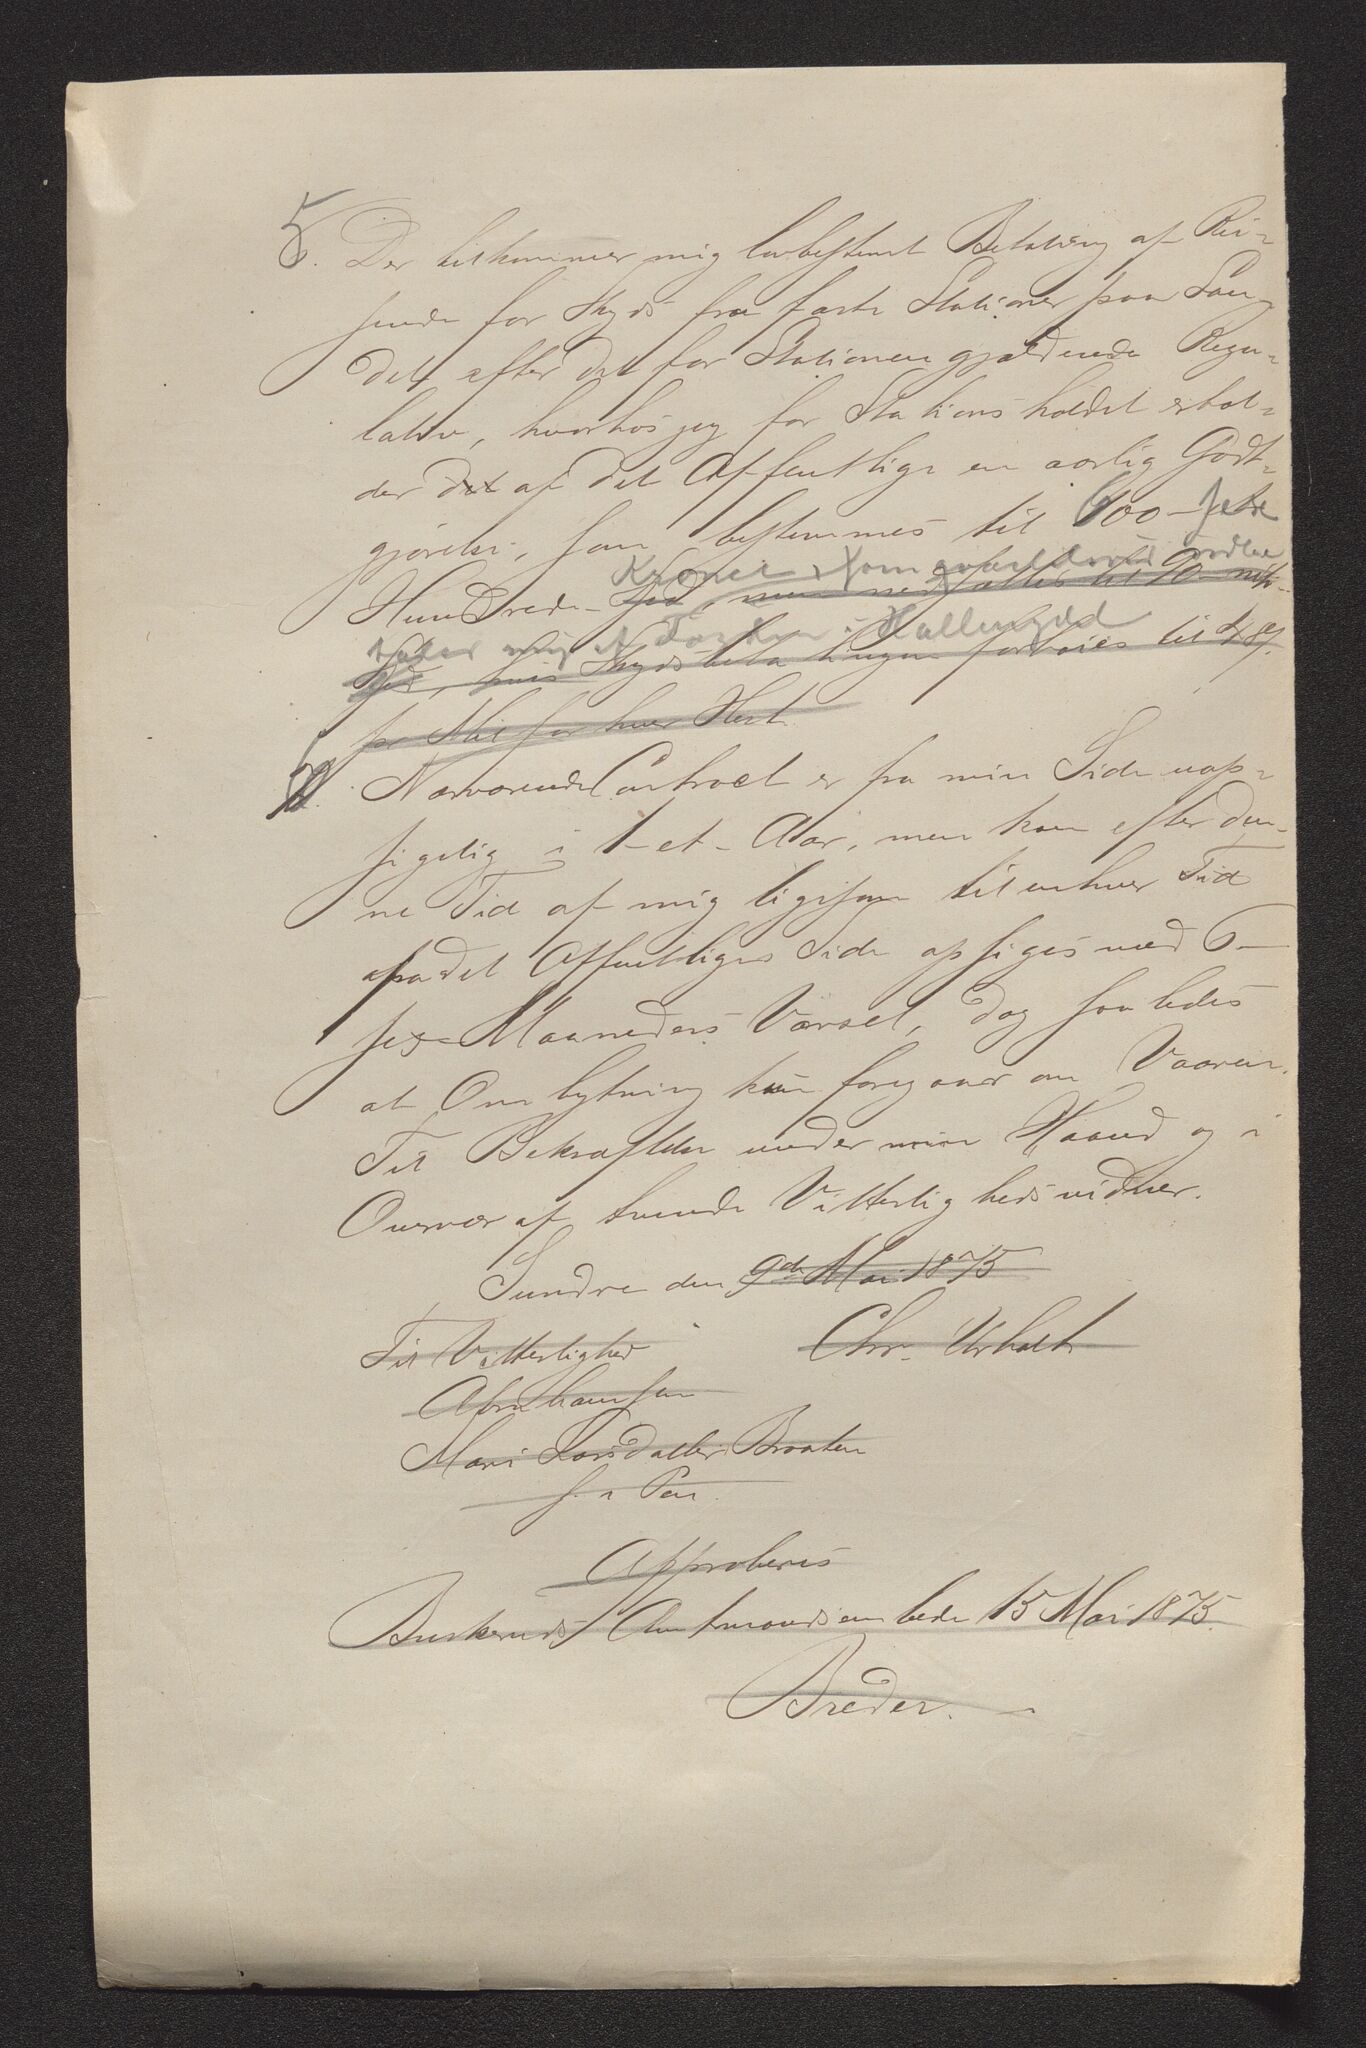 5. Der tilkommer mig lovbestemt Betaling af Rei-
sende for Skyds fra faste Stationer paa Lan-
det efter det for Stationen gjældende Regu-
lativ, hvorhos jeg for Stationsholdet erhol-
der det af det Offentlige en aarlig Godt-
gjørelse, som bestemmes til 600 - sex
Kroner som qvartalsvis udbe
Hundrede - Spd, men nedsættes til 90 - niti -
tales mig af Fogden i Hallingdal
Spd, hvis Skydsbetalingen forhøies til
pr Mil for hver Hest.
6. Nærværende Contract er fra min Side uop-
sigelig i 1 - et - Aar, men kan efter den-
ne Tid af mig ligesom til enhver Tid
fra det Offentliges Side opsiges med 6 -
sex - Maaneders Varsel, dog saaledes
at Ombytning kun foregaaer om Vaaren.
Til Bekræftelse under min Haand og i
Overvær af tvende Vitterlighedsvidner.
Sundre den 9de Mai 1875
Til Vitterlighed
Chr.
Abrahamsen
Mari Larsdatter Braaten
m. p. Pen.
Approberes
Buskeruds Amtmandsembede 15 Mai 1875.
Breder.